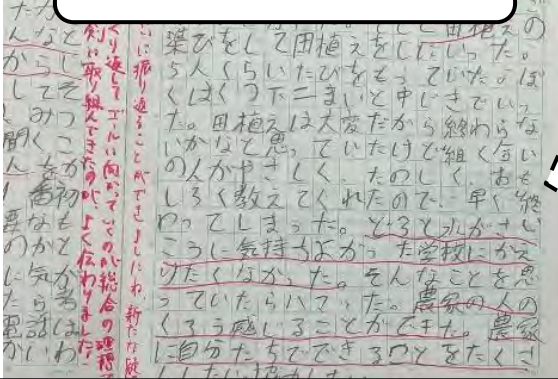 田植えの
びをして田植えをしにいった。
5人くらいたびをもっていた。ぼ
くはくつ下二まいと中じきでいっ
た。田植えは大変だから終わらな
いかなと思っていたけど組合い
の人がやさしく、たのしく、おも
しろく教えてくれたので、早く終
わってしまった。どろと水がさい
こうに気持ちよかった学校にかえ
りたくなかった。そんなことを思
っていたらハマった。農家の人の
くろう感じることができた。農家
に自分たちでできることをたくさ
いに振り返ることができましたね。新たな疑
くり返してゴールに向かっていくのが総合の
剣に取り組んできたのが、よく伝わりました!
んなと
からし
してそ
みつ
聞くこ
んをか
番初
なも
のかと
に気が
たら
電話は
かいわ